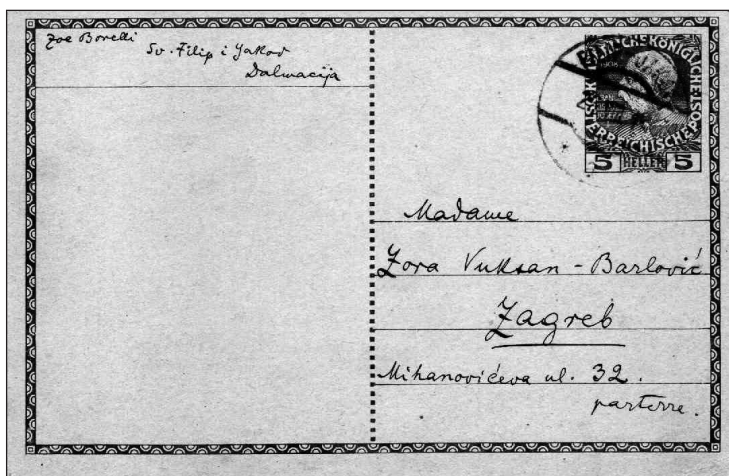 Zoe Borelli
Sv. Filip i Jakov
Dalmacija
KAISERLICHE KÖNIGLICHE
ÖSTERREICHISCHE POST
5 HELLER 5
Madame
Zora Vuksan-Barlović
Zagreb
Mihanovićeva ul. 32.
parterre.